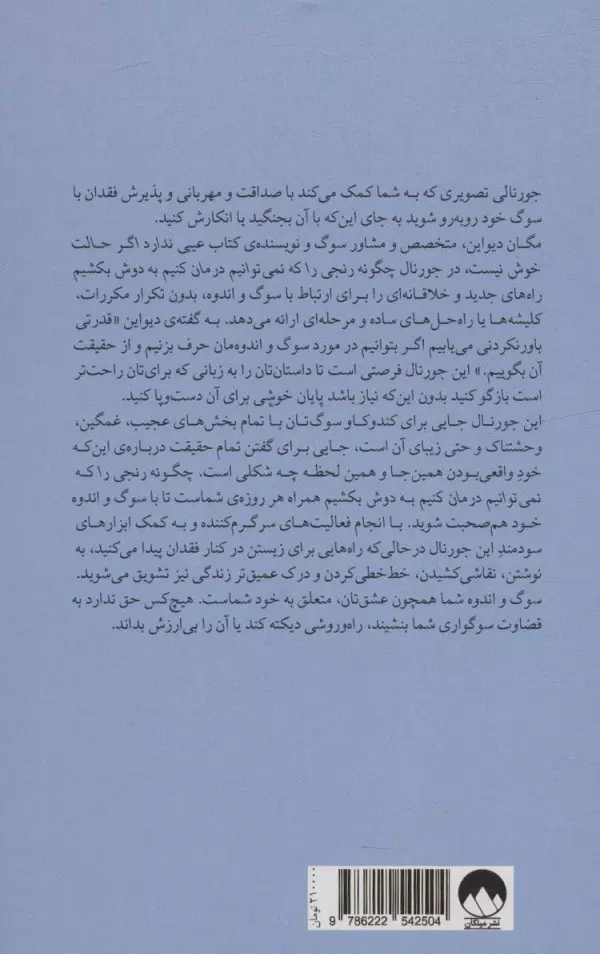 جورنالی تصویری که به شما کمک می‌کند با صداقت و مهربانی و پذیرش فقدان با
سوگ خود روبه‌رو شوید به جای این‌که با آن بجنگید یا انکارش کنید.
مگان دیواین، متخصص و مشاور سوگ و نویسنده‌ی کتاب عیبی ندارد اگر حالت
خوش نیست، در جورنال چگونه رنجی را که نمی‌توانیم درمان کنیم به دوش بکشیم
راه‌های جدید و خلاقانه‌ای را برای ارتباط با سوگ و اندوه، بدون تکرار مکررات،
کلیشه‌ها یا راه‌حل‌های ساده و مرحله‌ای ارائه می‌دهد. به گفته‌ی دیواین «قدرتی
باورنکردنی می‌یابیم اگر بتوانیم در مورد سوگ و اندوه‌مان حرف بزنیم و از حقیقت
آن بگوییم.» این جورنال فرصتی است تا داستان‌تان را به زبانی که برای‌تان راحت‌تر
است بازگو کنید بدون این‌که نیاز باشد پایان خوشی برای آن دست‌وپا کنید.
این جورنال جایی برای کندوکاو سوگ‌تان با تمام بخش‌های عجیب، غمگین،
وحشتناک و حتی زیبای آن است، جایی برای گفتن تمام حقیقت درباره‌ی این‌که
خودِ واقعی‌بودن همین‌جا و همین لحظه چه شکلی است. چگونه رنجی را که
نمی‌توانیم درمان کنیم به دوش بکشیم همراه هر روزه‌ی شماست تا با سوگ و اندوه
خود هم‌صحبت شوید. با انجام فعالیت‌های سرگرم‌کننده و به کمک ابزارهای
سودمندِ این جورنال درحالی‌که راه‌هایی برای زیستن در کنار فقدان پیدا می‌کنید، به
نوشتن، نقاشی‌کشیدن، خط‌خطی‌کردن و درک عمیق‌تر زندگی نیز تشویق می‌شوید.
سوگ و اندوه شما همچون عشق‌تان، متعلق به خود شماست. هیچ‌کس حق ندارد به
قضاوت سوگواری شما بنشیند، راه‌وروشی دیکته کند یا آن را بی‌ارزش بداند.
۲۱۰۰۰۰ تومان
9 786222 542504
نشر میلکان